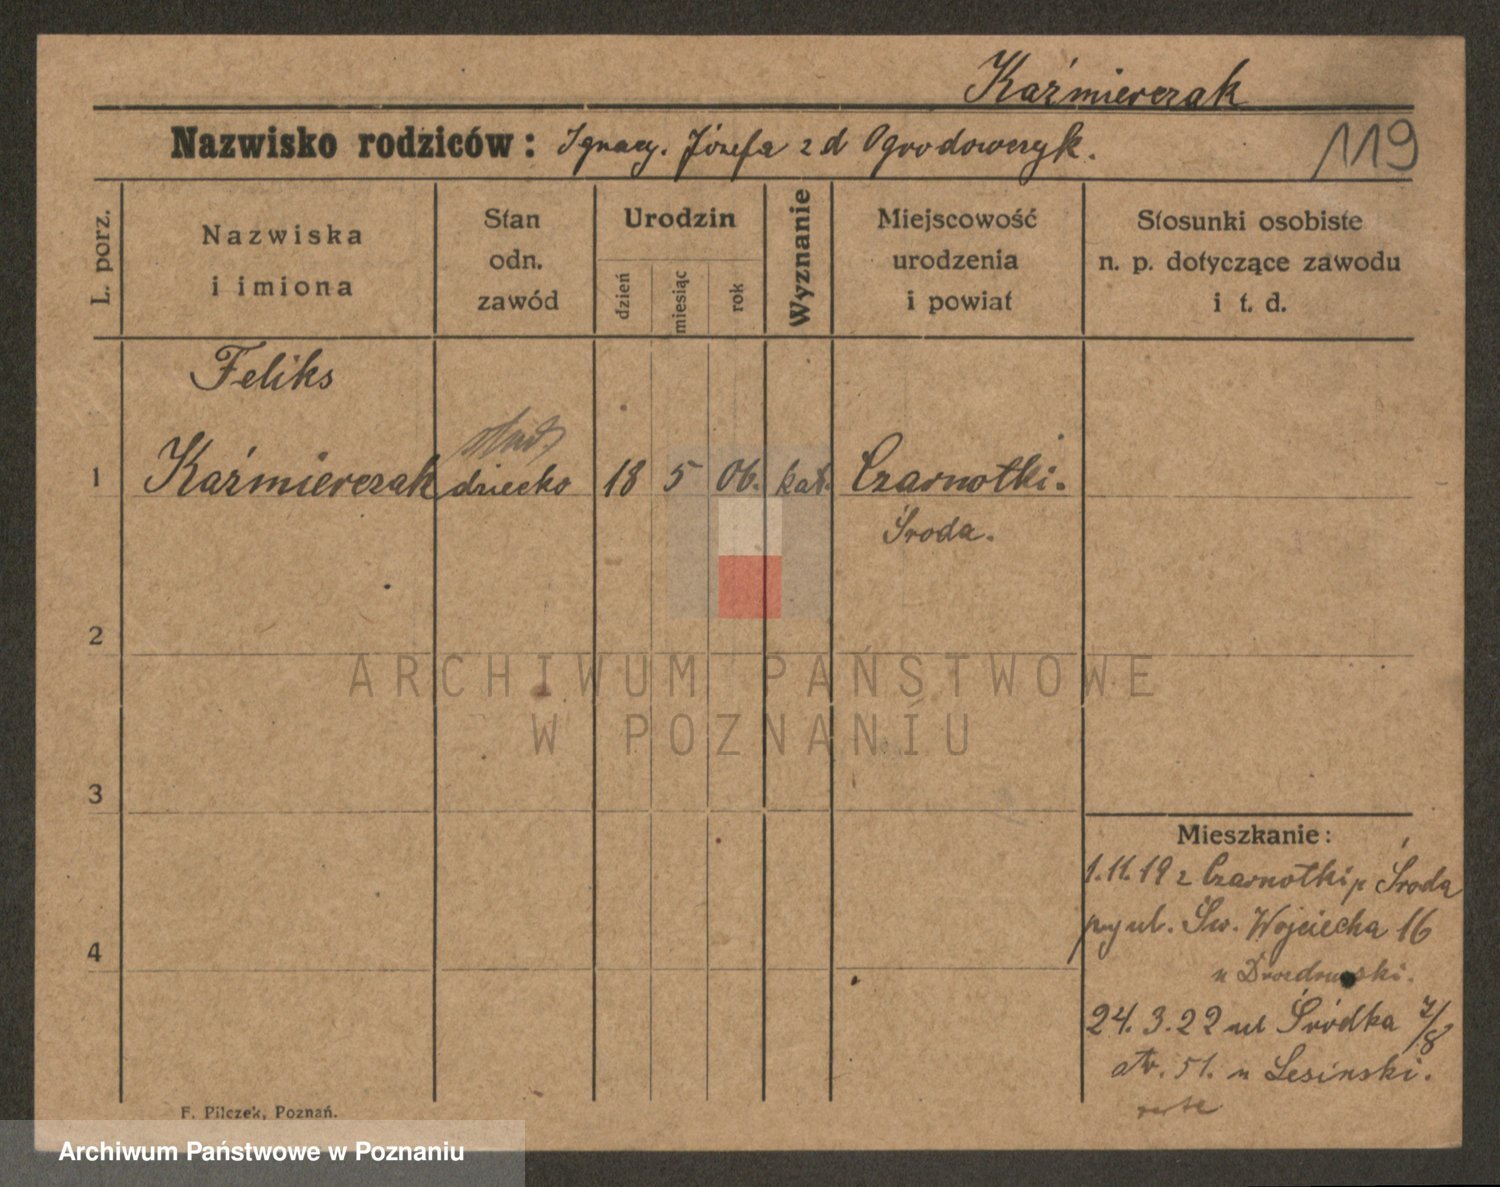 Kaźmierczak
Nazwisko rodziców: Ignacy. Józefa z d Ogrodowczyk.
119
L. porz.
Nazwiska
i imiona
Stan
odn.
zawód
Urodzin
dzień
miesiąc
rok
Wyznanie
Miejscowość
urodzenia
i powiat
Stosunki osobiste
n. p. dotyczące zawodu
i t. d.
Feliks
1 Kaźmierczak dziecko 18 5 06. kat. Czarnotki.
Środa.
2
ARCHIWUM PAŃSTWOWE
W POZNANIU
3
Mieszkanie:
1.11.19 z Czarnotki p Środa
ul. Św. Wojciecha 16
4
24. 3. 22 ul Śródka 7/8
51. u Lesinski.
F. Pilczek, Poznań.
Archiwum Państwowe w Poznaniu